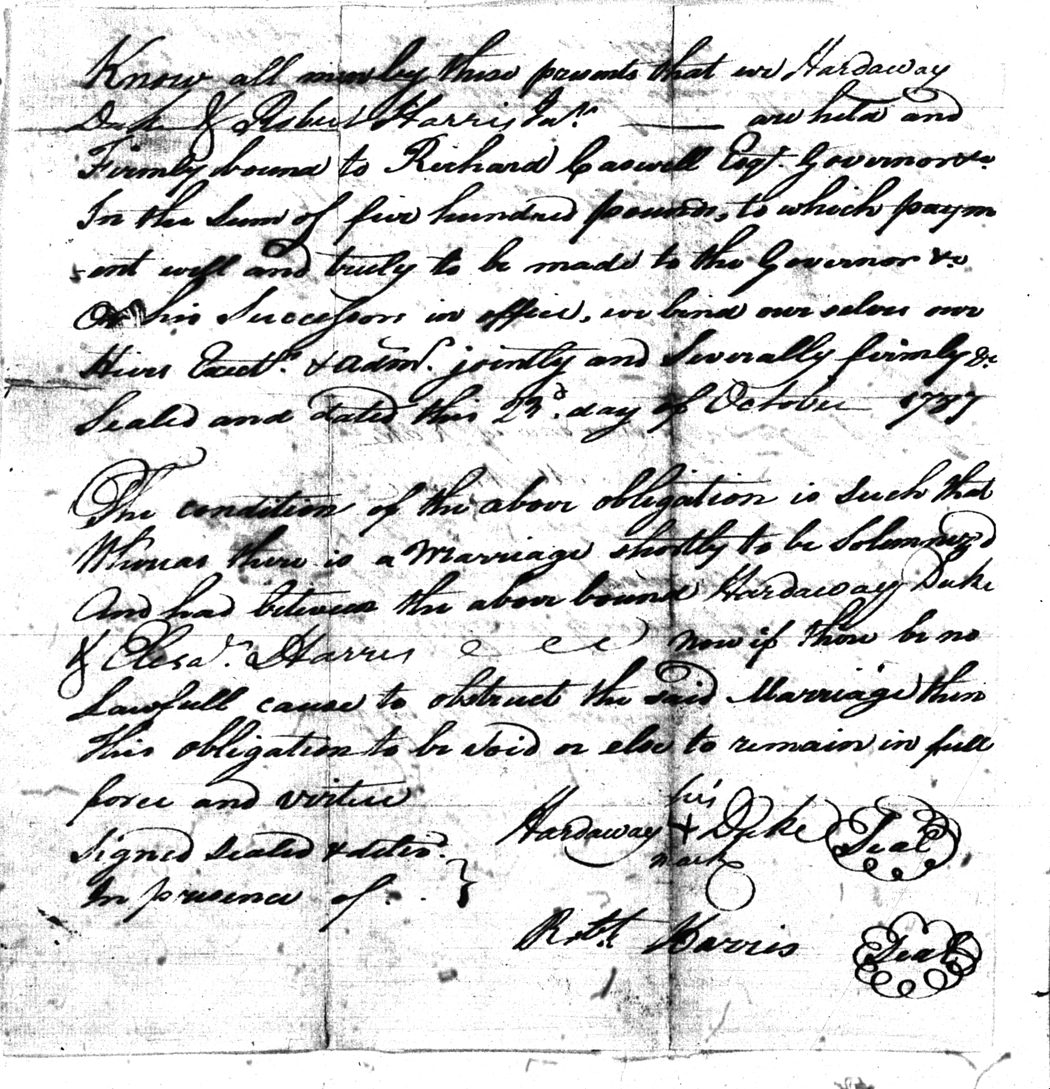 Know all men by these presents that we Hardaway
Duke & Robert Harris Junr. are held and
Firmly bound to Richard Caswell Esqr. Governor &c
In the Sum of five hundred pounds, to which paym
-ent well and truly to be made to the Governor &c
Or his Successors in office, we bind our selves our
Hiers Exectrs. & Admrs. jointly and Severally firmly &c
Sealed and dated this 23d. day of October 1787
The condition of the above obligation is Such that
Whereas there is a Marriage shortly to be Solemnized
And had between the above bound Hardaway Duke
& Elesar. Harris now if there be no
Lawfull cause to obstruct the said Marriage then
this obligation to be Void or else to remain in full
force and virtue
his
Hardaway + Duke Seal
mark
Signed Sealed &
In presence of
Robt. Harris Seal